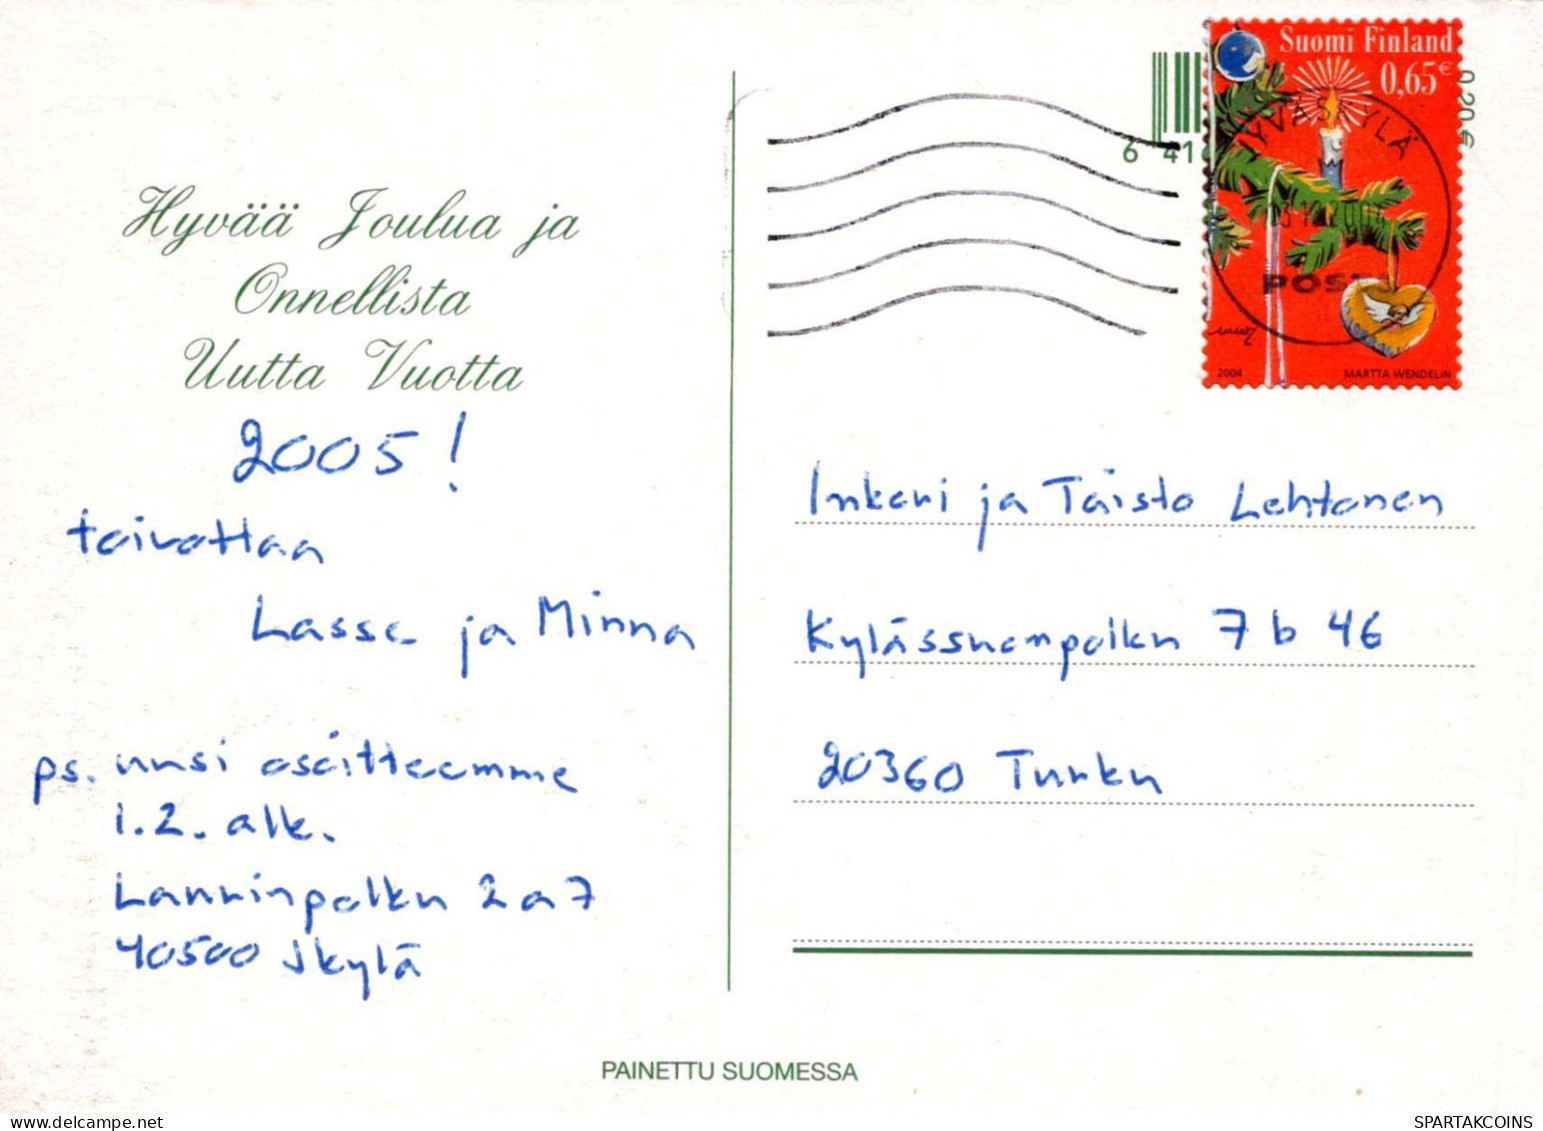 Hyvää Joulua ja
Onnellista
Uutta Vuotta
2005!
toivottaa
Lasse ja Minna
ps. uusi osoitteemme
1.2. alk.
Lanninpolku 2 a 7
40500 Jkylä
PAINETTU SUOMESSA
Suomi Finland
0,65€
0,20 €
6 41
JYVÄSKYLÄ
POSTI
2004
MARTTA WENDELIN
Inkeri ja Taisto Lehtonen
7 b 46
20360 Turku
SPARTAKCOINS
SPARTAKCOINS.COM